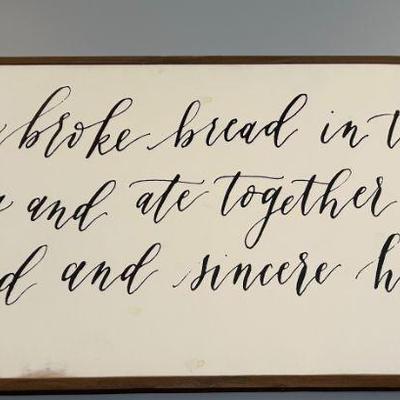 broke bread in t
and ate together
d and sincere h